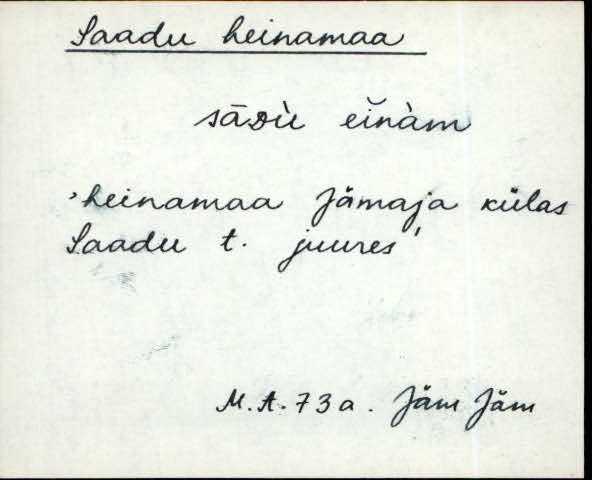 Saadu heinamaa
sāᴅù eĭnàm
'heinamaa Jämaja külas
Saadu t. juures'
M.A. 73a. Jäm Jäm